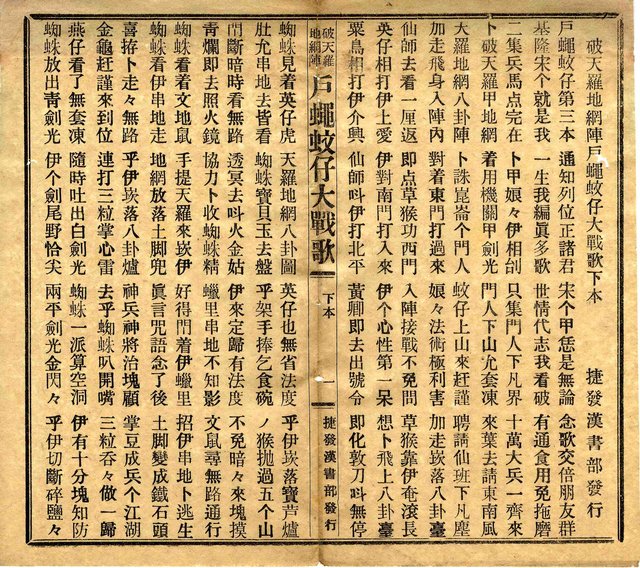 破天羅地網陣戶蠅蚊仔大戰歌下本 捷發漢書部發行
戶蠅蚊仔第三本 通知列位正諸君 宋个甲恁是無論 念歌交倍朋友群
基隆宋个就是我 一生我編眞多歌 世情代志我看破 有通食用免拖磨
二集兵馬点完在 卜甲娘々伊相剖 只集門人下凡界 十萬大兵一齊來
卜破天羅甲地網 着用機關甲劍光 門人下山尤套凍 來葉去請東南風
大羅地網八卦陣 卜誅崑崙个門人 蚊仔上山來赶謹 聘請仙班下凡塵
加走飛身入陣內 對着東門打過來 娘々法術極利害 加走崁落八卦臺
仙師去看一厘返 即点草猴功西門 入陣接戰不免問 草猴靠伊奄滾長
英仔相打伊上愛 伊對南門打入來 伊个心性第一呆 想卜飛上八卦臺
粟鳥相打伊介興 仙師呌伊打北平 黃卿即去出號令 即化敦刀呌無停
破天羅地網陣 戶蠅蚊仔大戰歌 下本 一 捷發漢書部發行
蜘蛛見着英仔虎 天羅地網八卦圖 英仔也無省法度 乎伊崁落寶芦爐
肚允串地去皆看 蜘蛛寶貝玉去盤 乎架手捧乞食碗 ノ猴拋過五个山
門斷暗時看無路 透冥去呌火金姑 伊來定歸有法度 不免暗々來塊摸
青爛即去照火鏡 協力卜收蜘蛛精 蠟里串地不知影 文鼠尋無路通行
蜘蛛看着文地鼠 手提天羅來崁伊 好得門着伊蠟里 招伊串地卜逃生
蜘蛛看伊串地走 地網放落土脚兜 眞言咒語念了後 土脚變成鐵石頭
喜捬卜走々無路 乎伊崁落八卦爐 神兵神將治塊顧 掌豆成兵个江湖
金龜赶謹來到位 連打三粒掌心雷 去乎蜘蛛叭開嘴 三粒呑々做一歸
燕仔看了無套凍 隨時吐出白劍光 蜘蛛一派算空洞 伊有十分塊知防
蜘蛛放出靑劍光 伊个劍尾野恰尖 兩平劍光金閃々 乎伊切斷碎鹽々